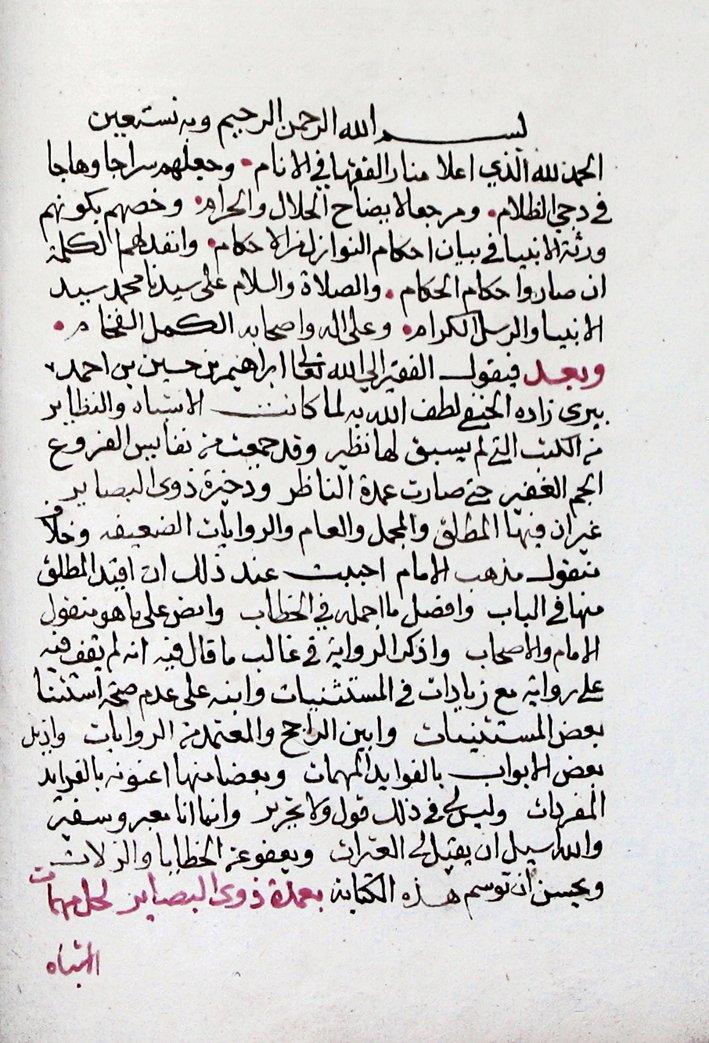 بســـــم الله الرحمن الرحيم وبه نستعين
الحمد لله الذي اعلا منار الفقها في الانام • وجعلهم سراجا وهاجا
في دجي الظلام • ومرجعا لايضاح الحلال والحرام • وخصهم بكونهم
ورثة الانبيا في بيان احكام النوازل من الاحكام • وانقد لهم الكلمة
ان صاروا حكام الحكام • والصلاة والسلام على سيدنا محمد سيد
الانبيا والرسل الكرام • وعلى اله واصحابه الكمل الفخام •
وبعد فيقول الفقير الي الله تعالى ابراهيم بن حسين بن احمد
بيرى زاده الحنفي لطف الله به لما كانت الاشباه والنظاير
من الكتب التي لم يسبق لها نظير وقد جمعت من نفايس الفروع
الجم الغفير حتى صارت عمدة الناظر وذخيرة ذوى البصاير
غير ان فيها المطلق والمجمل والعام والروايات الضعيفه وخلاف
منقول مذهب الامام احببت عند ذلك ان اقيد المطلق
منها في الباب وافصل ما اجمله في الخطاب وانص على ما هو منقول
الامام والاصحاب واذكر الرواية في غالب ما قال فيه انه لم يقف فيه
على رواية مع زيادات في المستثنيات وانبه على عدم صحة استثنا
بعض المستثنيات وابين الراجح والمعتمد من الروايات واذيل
بعض الابواب بالفوايد المهمات وبعضا منها اعنونه بالفرايد
المفردات وليس لي في ذلك قول ولا تحرير وانما انا معبر وسفير
والله اسيل ان يقيل لي العثرات ويعفو عن الخطايا والزلات
ويحسن ان توسم هذه الكتابة بعمدة ذوى البصاير لحل مهمات
الاشباه